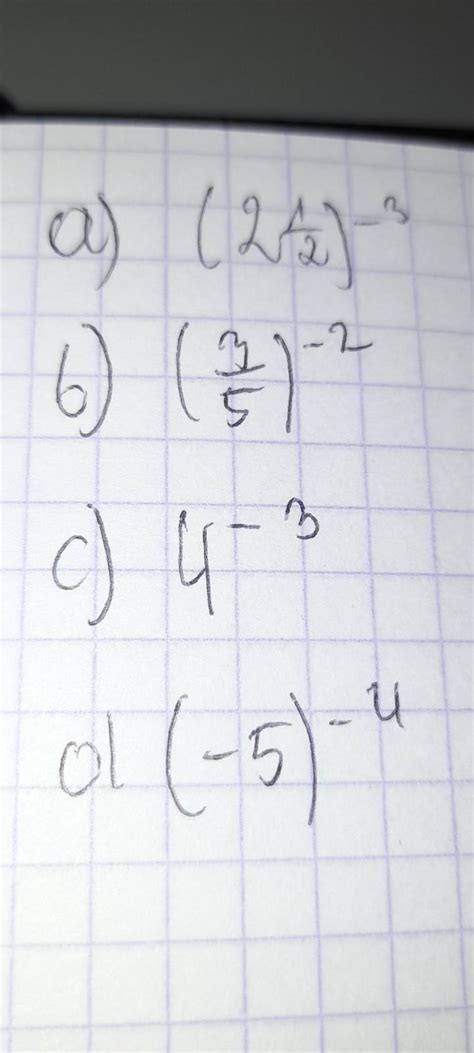 a) (2 1/2)^-3
б) (3/5)^-2
c) 4^-3
d) (-5)^-4